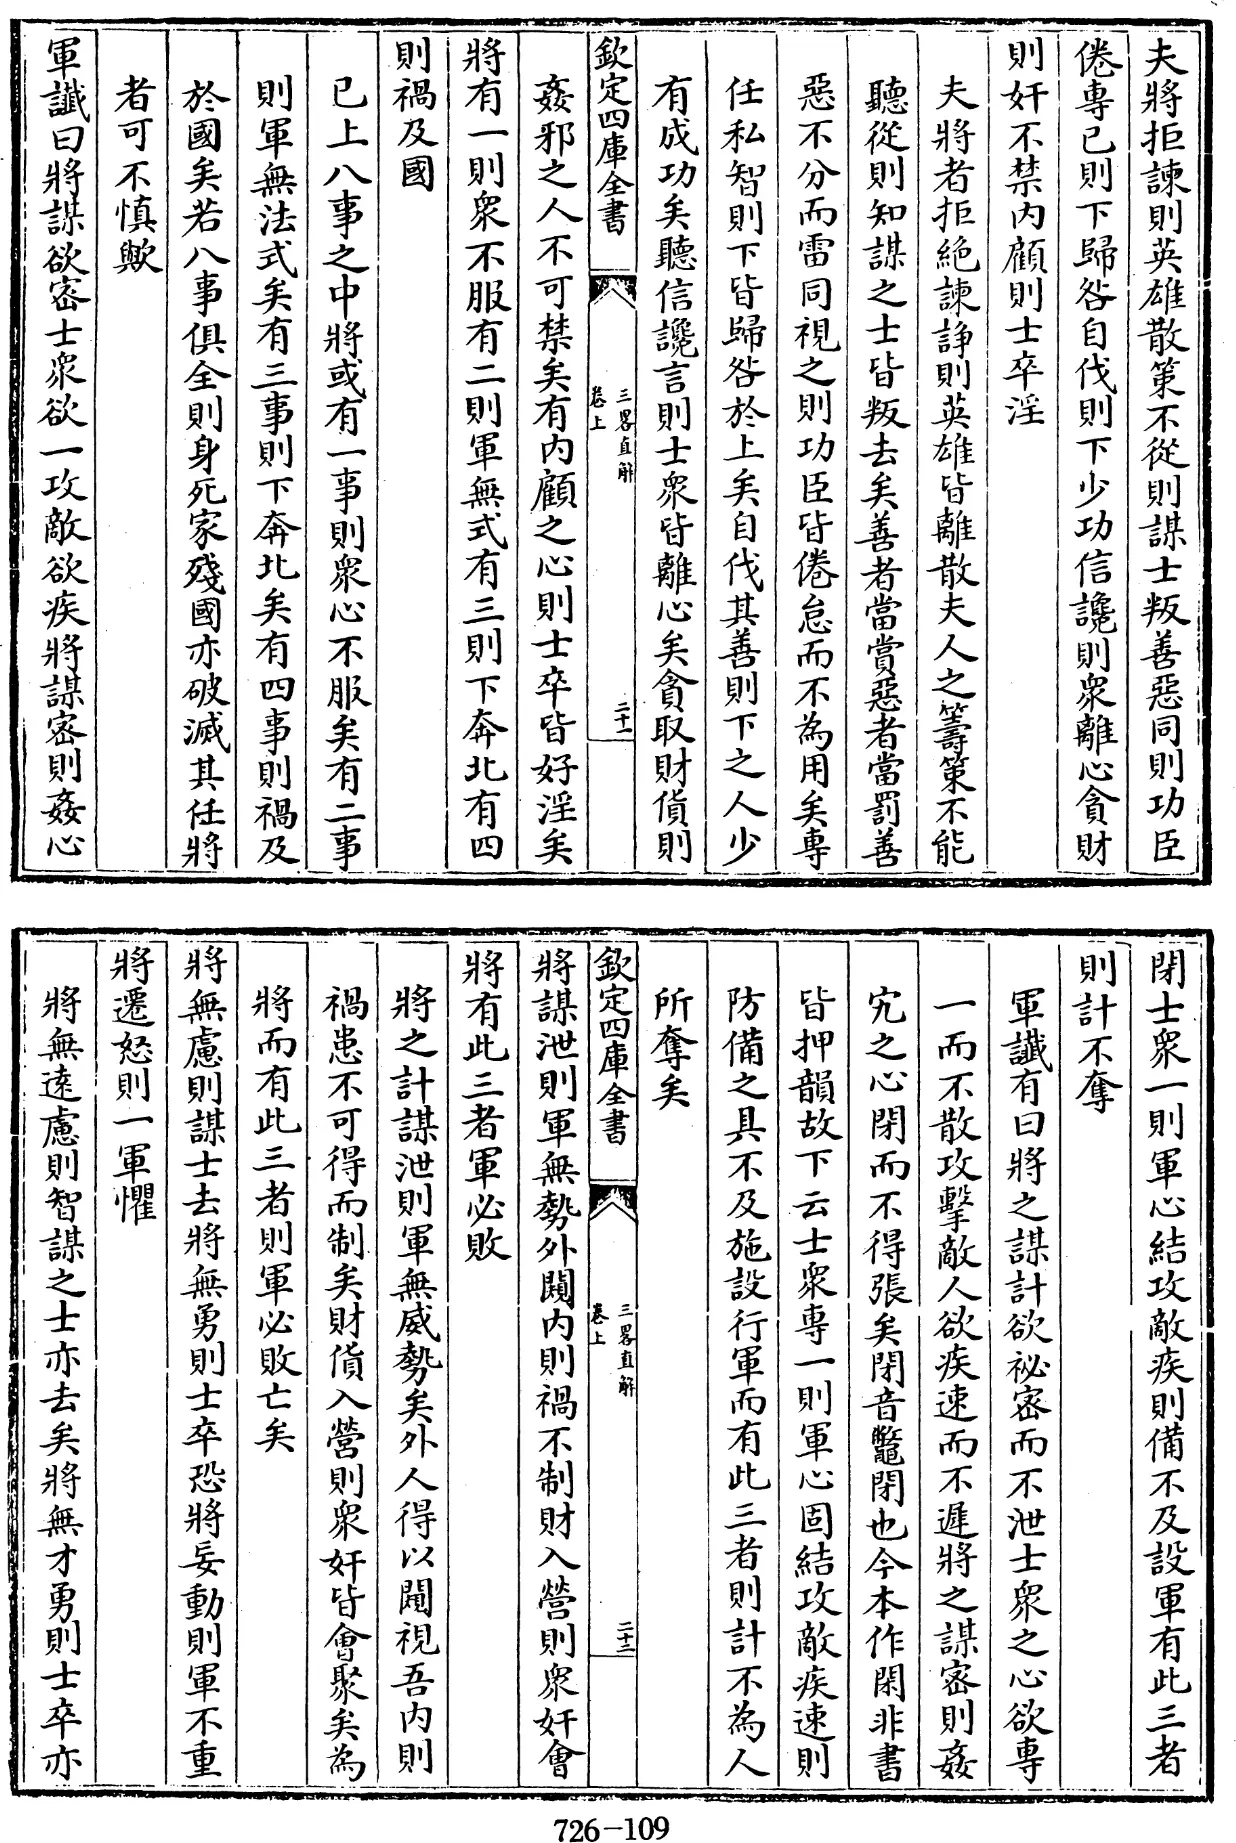 夫將拒諫則英雄散策不從則謀士叛善惡同則功臣
倦專已則下歸咎自伐則下少功信讒則衆離心貪財
則奸不禁内顧則士卒淫
夫將者拒絶諫諍則英雄皆離散夫人之籌策不能
聽從則知謀之士皆叛去矣善者當賞惡者當罰善
惡不分而雷同視之則功臣皆倦怠而不為用矣專
任私智則下皆歸咎於上矣自伐其善則下之人少
有成功矣聽信讒言則士衆皆離心矣貪取財貨則
欽定四庫全書
三畧直解
卷上
二十一
姦邪之人不可禁矣有内顧之心則士卒皆好淫矣
將有一則衆不服有二則軍無式有三則下奔北有四
則禍及國
已上八事之中將或有一事則衆心不服矣有二事
則軍無法式矣有三事則下奔北矣有四事則禍及
於國矣若八事俱全則身死家殘國亦破滅其任將
者可不慎歟
軍讖曰將謀欲密士衆欲一攻敵欲疾將謀密則姦心
閉士衆一則軍心結攻敵疾則備不及設軍有此三者
則計不奪
軍讖有曰將之謀計欲祕密而不泄士衆之心欲專
一而不散攻擊敵人欲疾速而不遲將之謀密則姦
宄之心閉而不得張矣閉音鼈閉也今本作閑非書
皆押韻故下云士衆專一則軍心固結攻敵疾速則
防備之具不及施設行軍而有此三者則計不為人
所奪矣
欽定四庫全書
三畧直解
卷上
二十二
將謀泄則軍無勢外闚内則禍不制財入營則衆奸會
將有此三者軍必敗
將之計謀泄則軍無威勢矣外人得以闚視吾内則
禍患不可得而制矣財貨入營則衆奸皆會聚矣為
將而有此三者則軍必敗亡矣
將無慮則謀士去將無勇則士卒恐將妄動則軍不重
將遷怒則一軍懼
將無遠慮則智謀之士亦去矣將無才勇則士卒亦
726-109